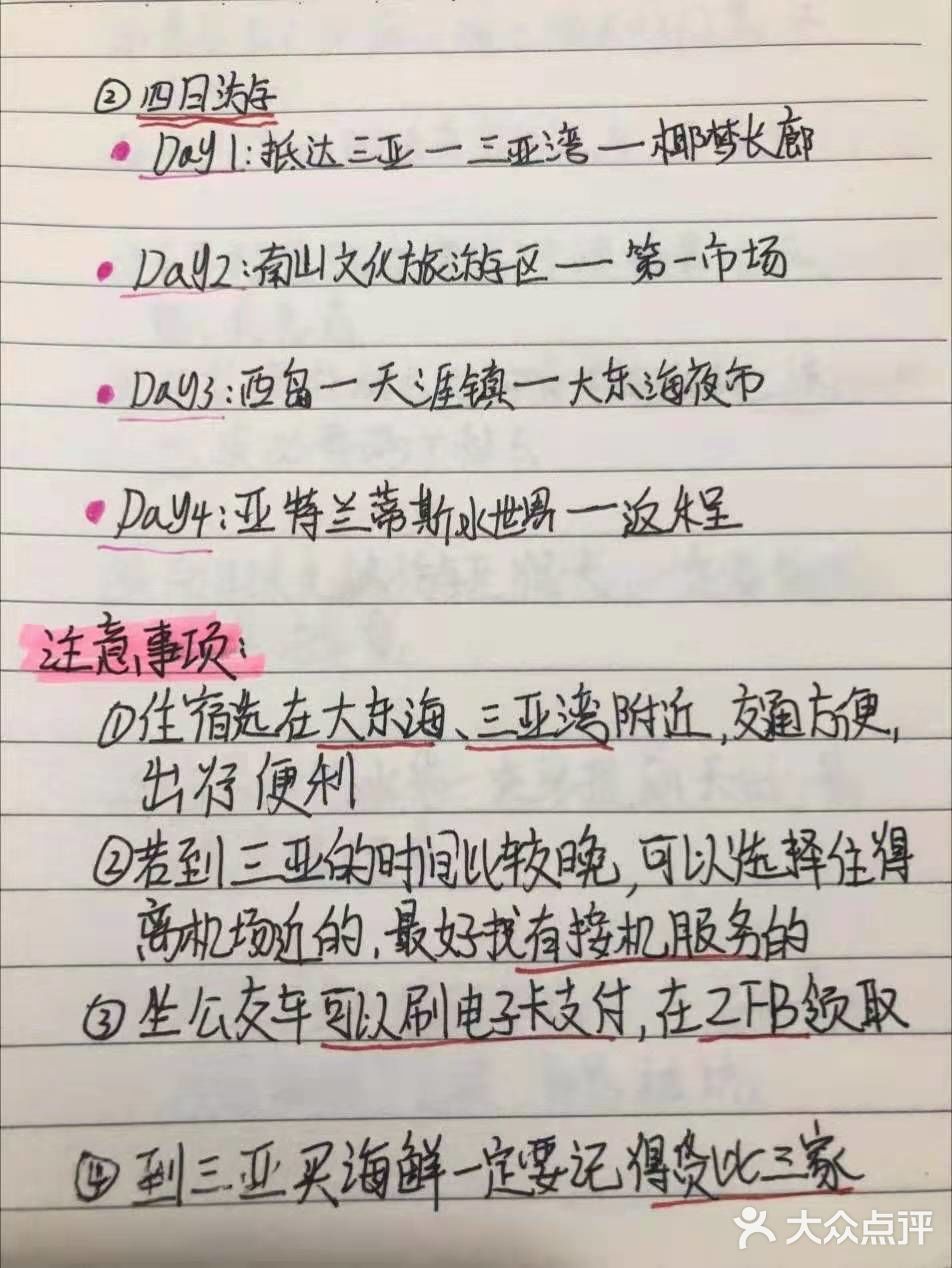 ② 四日游
• Day1:抵达三亚一三亚湾一椰梦长廊
• Day2:南山文化旅游区——第一市场
• Day3:西岛一天涯镇一大东海夜市
• Day4:亚特兰蒂斯水世界一返程
注意事项:
①住宿选在大东海、三亚湾附近,交通方便,
出行便利
②若到三亚的时间比较晚,可以选择住得
离机场近的,最好找有接机服务的
③坐公交车可以刷电子卡支付,在ZFB领取
④到三亚买海鲜一定要记得货比三家
大众点评